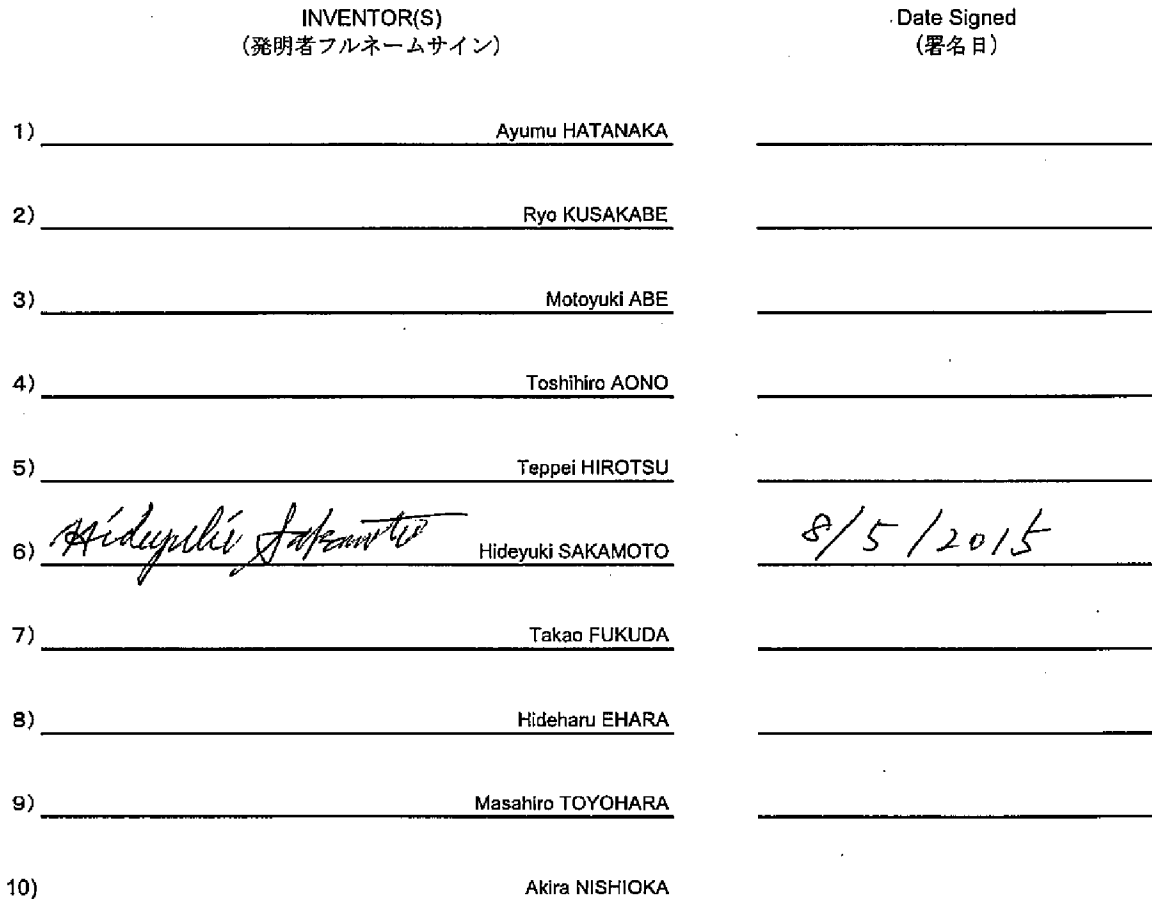 INVENTOR(S) Date Signed
(発明者フルネームサイン) (署名日)
1) Ayumu HATANAKA
2) Ryo KUSAKABE
3) Motoyuki ABE
4) Toshihiro AONO
5) Teppei HIROTSU
6) Hideyuki Sakamoto Hideyuki SAKAMOTO 8/5/2015
7) Takao FUKUDA
8) Hideharu EHARA
9) Masahiro TOYOHARA
10) Akira NISHIOKA